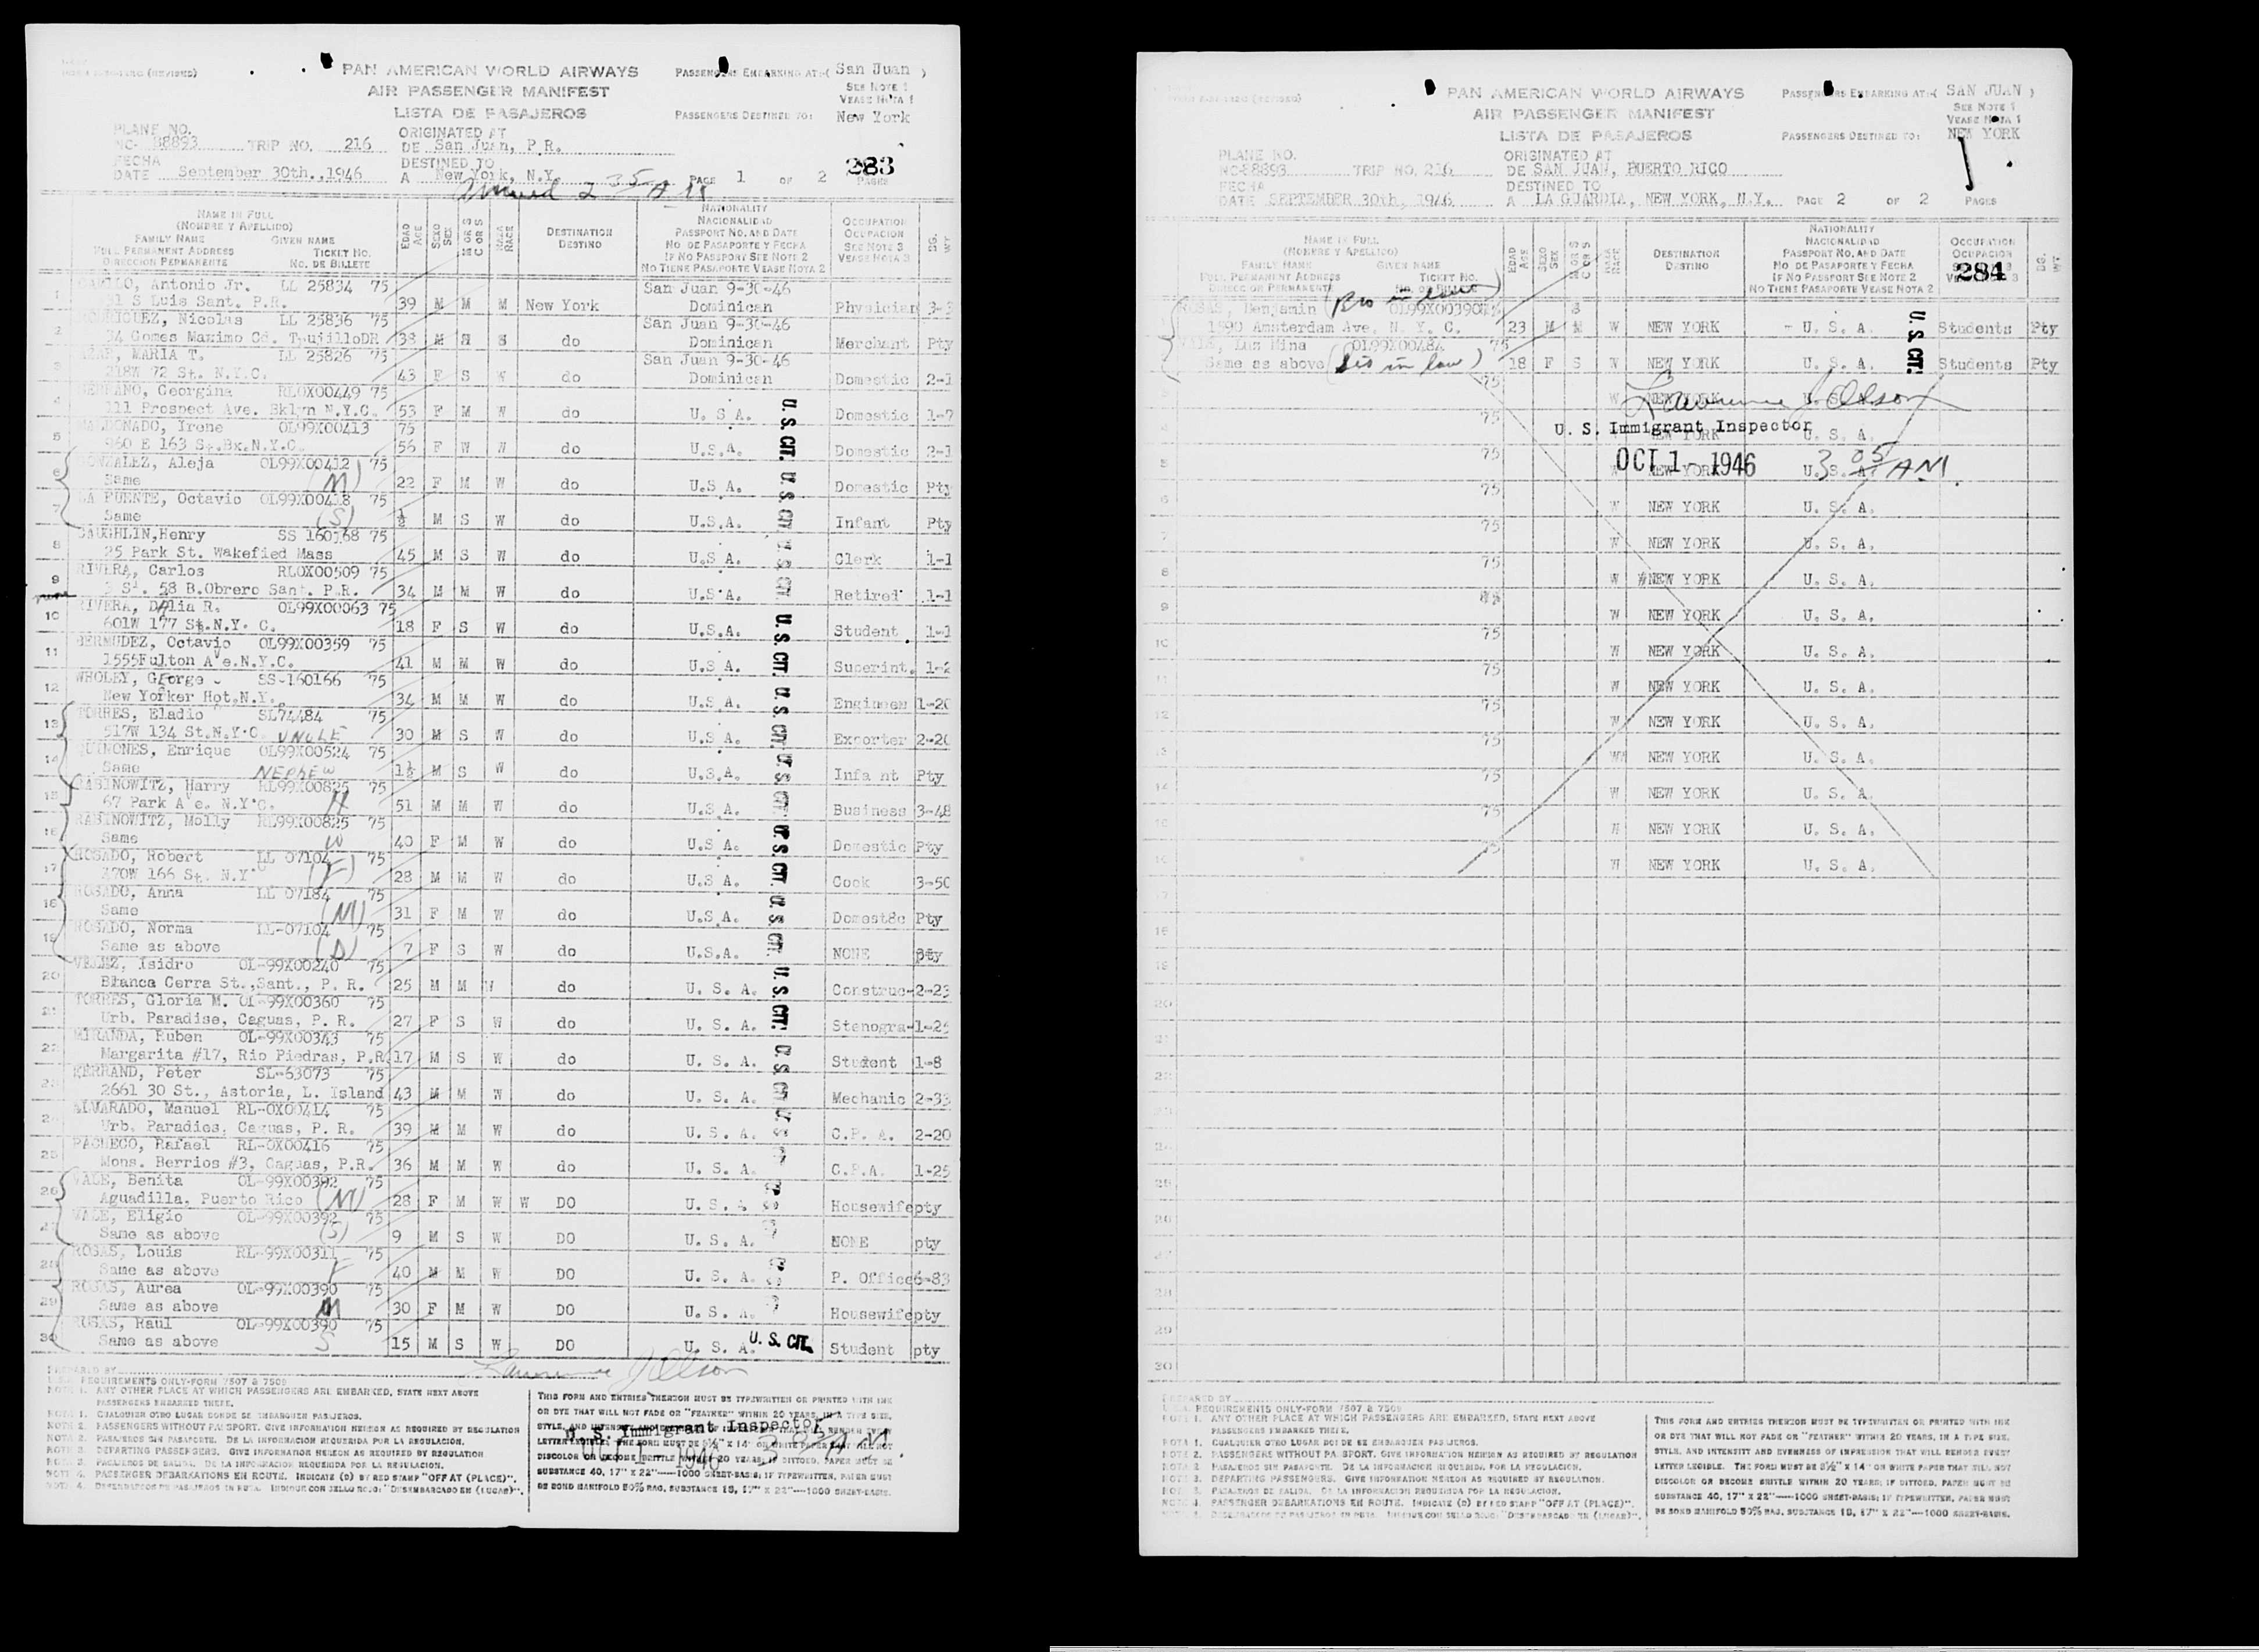 PAN AMERICAN WORLD AIRWAYS
AIR PASSENGER MANIFEST
LISTA DE PASAJEROS
PASSENGERS EMBARKING AT: ( San Juan )
SEE NOTE 1
VEASE NOTA 1
PASSENGERS DESTINED TO: New York
PLANE NO.
NC- 88893 TRIP NO. 216
ORIGINATED AT
DE San Juan, P.R.
FECHA
DATE September 30th.,1946
DESTINED TO
A New York, N.Y.
PAGE 1 OF 2 PAGES
283
2 35 A M
NAME IN FULL
(NOMBRE Y APELLIDO)
FAMILY NAME GIVEN NAME
FULL PERMANENT ADDRESS TICKET NO.
DIRECCION PERMANENTE NO. DE BILLETE
EDAD AGE
SEXO SEX
M OR S C OR S
RAZA RACE
DESTINATION
DESTINO
NATIONALITY
NACIONALIDAD
PASSPORT NO. AND DATE
NO. DE PASAPORTE Y FECHA
IF NO PASSPORT SEE NOTE 2
NO TIENE PASAPORTE VEASE NOTA 2
OCCUPATION
OCUPACION
SEE NOTE 3
VEASE NOTA 3
1 Antonio Jr. LL 25834 75 San Juan 9-30-46
S Luis Sant. P.R. 39 M M M New York Dominican Physician
2 Nicolas LL 25836 75 San Juan 9-30-46
34 Gomes Maximo Cd. TrujilloDR 38 M do Dominican Merchant Pty
3 MARIA T. LL 25826 75 San Juan 9-30-46
218W 72 St. N.Y.C. 43 F S W do Dominican Domestic 2-1
4 Georgina RLOX00449 75
111 Prospect Ave. Bklyn N.Y.C. 53 F M W do U. S A. Domestic 1-7
5 MALDONADO, Irene OL99X00413 75
960 E 163 St.Bx.N.Y.C. 56 F W W do U.S.A. Domestic 2-1
6 GONZALEZ, Aleja OL99X00412 75
Same (M) 22 F M W do U.S A. Domestic Pty
7 LA FUENTE, Octavio OL99X00418 75
Same (S) ½ M S W do U.S.A. Infant Pty
8 Henry SS 160168 75
25 Park St. Wakefied Mass 45 M S W do U.S A. Clerk 1-1
9 RIVERA, Carlos RLOX00509 75
St. 58 B.Obrero Sant. P.R. 34 M M W do U.S.A. Retired 1-1
10 RIVERA, Dalia R. OL99X00063 75
601W 177 St.N.Y. C. 18 F S W do U.S.A. Student 1-1
11 BERMUDEZ, Octavio OL99X00359 75
1555Fulton Ave.N.Y.C. 41 M M W do U.S A. Superint. 1-2
12 WHOLEY, George SS-160166 75
New Yorker Hot.N.Y. 34 M M W do U.S A. Engineer 1-20
13 TORRES, Eladio SL74484 75
517W 134 St.N.Y.C. UNCLE 30 M S W do U.S A. Exporter 2-20
14 QUINONES, Enrique OL99X00524 75
Same NEPHEW 1½ M S W do U.S.A. Infa nt Pty
15 RABINOWITZ, Harry RL99X00825 75
67 Park Ave. N.Y.C. H 51 M M W do U.S.A. Business 3-48
16 RABINOWITZ, Molly RL99X00825 75
Same W 40 F M W do U.S A. Domestic Pty
17 ROSADO, Robert LL 07104 75
470W 166 St. N.Y. (F) 28 M M W do U.S A. Cook 3-50
18 ROSADO, Anna LL 07184 75
Same (M) 31 F M W do U.S A. Domest8c Pty
19 ROSADO, Norma LL-07104 75
Same as above (D) 7 F S W do U.S.A. NONE pty
20 VELEZ, Isidro OL-99X00240 75
Blanca Cerra St.,Sant., P. R. 25 M M W do U. S. A. Construc- 2-23
21 TORRES, Gloria M. OL-99X00360 75
Urb. Paradise, Caguas, P. R. 27 F S W do U. S. A. Stenogra- 1-25
22 MIRANDA, Ruben OL-99X00343 75
Margarita #17, Rio Piedras, P.R 17 M S W do U. S. A. Student 1-8
23 Peter SL-63073 75
2661 30 St., Astoria, L. Island 43 M M W do U. S. A. Mechanic 2-33
24 ALVARADO, Manuel RL-0X00414 75
Urb. Paradies, Caguas, P. R. 39 M M W do U. S. A. C.P. A. 2-20
25 PACHECO, Rafael RL-0X00416 75
Mons. Berrios #3, Caguas, P.R. 36 M M W do U. S. A. C.P.A. 1-25
26 VALE, Benita OL-99X00392 75
Aguadilla, Puerto Rico (M) 28 F M W W DO U. S. A. Housewife pty
27 VALE, Eligio OL-99X00392 75
Same as above (S) 9 M S W DO U. S. A. NONE pty
28 ROSAS, Louis RL-99X00311 75
Same as above F 40 M M W DO U. S. A. P. Office 6-83
29 ROSAS, Aurea OL-99X00390 75
Same as above M 30 F M W DO U. S. A. Housewife pty
30 ROSAS, Raul OL-99X00390 75
Same as above S 15 M S W DO U. S. A. U. S. CIT. Student pty
Lawrence J Olson
U. S. Immigrant Inspector
OCT 1 1946
PREPARED BY
U.S. REQUIREMENTS ONLY-FORM 7507 & 7509
NOTE 1. ANY OTHER PLACE AT WHICH PASSENGERS ARE EMBARKED, STATE NEXT ABOVE
PASSENGERS EMBARKED THERE.
NOTA 1. CUALQUIER OTRO LUGAR DONDE SE EMBARQUEN PASAJEROS.
NOTE 2. PASSENGERS WITHOUT PASSPORT. GIVE INFORMATION HEREON AS REQUIRED BY REGULATION
NOTA 2. PASAJEROS SIN PASAPORTE. DE LA INFORMACION REQUERIDA POR LA REGULACION.
NOTE 3. DEPARTING PASSENGERS. GIVE INFORMATION HEREON AS REQUIRED BY REGULATION
NOTA 3. PASAJEROS DE SALIDA. DE LA INFORMACION REQUERIDA POR LA REGULACION.
NOTE 4. PASSENGER DEBARKATIONS EN ROUTE. INDICATE (D) BY RED STAMP "OFF AT (PLACE)".
NOTA 4. DESEMBARCOS DE PASAJEROS EN RUTA. INDIQUE CON SELLO ROJO: "DESEMBARCADO EN (LUGAR)".
THIS FORM AND ENTRIES THEREON MUST BE TYPEWRITTEN OR PRINTED WITH INK
OR DYE THAT WILL NOT FADE OR "FEATHER" WITHIN 20 YEARS, IN A TYPE SIZE,
STYLE, AND INTENSITY
LETTER LEGIBLE. THE FORM MUST BE 8½" X 14" ON WHITE PAPER THAT WILL NOT
DISCOLOR OR BECOME BRITTLE WITHIN 20 YEARS; IF DITTOED, PAPER MUST BE
SUBSTANCE 40, 17" X 22"----1000 SHEET-BASIS; IF TYPEWRITTEN, PAPER MUST
BE BOND MANIFOLD 50% RAG, SUBSTANCE 18, 17" X 22"---1000 SHEET-BASIS.
PAN AMERICAN WORLD AIRWAYS
AIR PASSENGER MANIFEST
LISTA DE PASAJEROS
PASSENGERS EMBARKING AT: ( SAN JUAN )
SEE NOTE 1
VEASE NOTA 1
PASSENGERS DESTINED TO: NEW YORK
PLANE NO.
NC-88893 TRIP NO. 216
ORIGINATED AT
DE SAN JUAN, PUERTO RICO
FECHA
DATE SEPTEMBER 30th, 1946
DESTINED TO
A LA GUARDIA, NEW YORK, N.Y.
PAGE 2 OF 2 PAGES
NAME IN FULL
(NOMBRE Y APELLIDO)
FAMILY NAME GIVEN NAME
FULL PERMANENT ADDRESS TICKET NO.
DIRECCION PERMANENTE NO. DE BILLETE
EDAD AGE
SEXO SEX
M OR S C OR S
RAZA RACE
DESTINATION
DESTINO
NATIONALITY
NACIONALIDAD
PASSPORT NO. AND DATE
NO. DE PASAPORTE Y FECHA
IF NO PASSPORT SEE NOTE 2
NO TIENE PASAPORTE VEASE NOTA 2
OCCUPATION
OCUPACION
284
(Bro in law)
ROSAS, Benjamin OL99X00390 S
1590 Amsterdam Ave. N. Y. C. 23 M M W NEW YORK - U. S. A. Students Pty
Luz Mina OL99X00484 75
Same as above (Sis in law) 18 F S W NEW YORK U. S. A. U. S. CIT. Students Pty
75 W NEW YORK U. S. A.
Lawrence J Olson
U. S. Immigrant Inspector
75 NEW YORK U. S. A.
OCT 1 - 1946 3 05 AM
5 75 W NEW YORK U. S. A.
6 75 W NEW YORK U. S. A.
7 75 W NEW YORK U. S. A.
8 75 W NEW YORK U. S. A.
9 W NEW YORK U. S. A.
10 75 W NEW YORK U. S. A.
11 75 W NEW YORK U. S. A.
12 75 W NEW YORK U. S. A.
13 75 W NEW YORK U. S. A.
14 75 W NEW YORK U. S. A.
15 75 W NEW YORK U. S. A.
16 75 W NEW YORK U. S. A.
17
18
19
20
21
22
23
24
25
26
27
28
29
30
PREPARED BY
U.S. REQUIREMENTS ONLY-FORM 7507 & 7509
NOTE 1. ANY OTHER PLACE AT WHICH PASSENGERS ARE EMBARKED, STATE NEXT ABOVE
PASSENGERS EMBARKED THERE.
NOTA 1. CUALQUIER OTRO LUGAR DONDE SE EMBARQUEN PASAJEROS.
NOTE 2. PASSENGERS WITHOUT PASSPORT. GIVE INFORMATION HEREON AS REQUIRED BY REGULATION
NOTA 2. PASAJEROS SIN PASAPORTE. DE LA INFORMACION REQUERIDA, POR LA REGULACION.
NOTE 3. DEPARTING PASSENGERS. GIVE INFORMATION HEREON AS REQUIRED BY REGULATION.
NOTA 3. PASAJEROS DE SALIDA. DE LA INFORMACION REQUERIDA POR LA REGULACION.
NOTE 4. PASSENGER DEBARKATIONS EN ROUTE. INDICATE (D) BY RED STAMP "OFF AT (PLACE)".
NOTA 4. DESEMBARCOS DE PASAJEROS EN RUTA. INDIQUE CON SELLO ROJO: "DESEMBARCADO EN (LUGAR)".
THIS FORM AND ENTRIES THEREON MUST BE TYPEWRITTEN OR PRINTED WITH INK
OR DYE THAT WILL NOT FADE OR "FEATHER" WITHIN 20 YEARS, IN A TYPE SIZE,
STYLE, AND INTENSITY AND EVENNESS OF IMPRESSION THAT WILL RENDER EVERY
LETTER LEGIBLE. THE FORM MUST BE 8½" X 14" ON WHITE PAPER THAT WILL NOT
DISCOLOR OR BECOME BRITTLE WITHIN 20 YEARS; IF DITTOED, PAPER MUST BE
SUBSTANCE 40, 17" X 22"----1000 SHEET-BASIS; IF TYPEWRITTEN, PAPER MUST
BE BOND MANIFOLD 50% RAG, SUBSTANCE 18, 17" X 22"---1000 SHEET-BASIS.